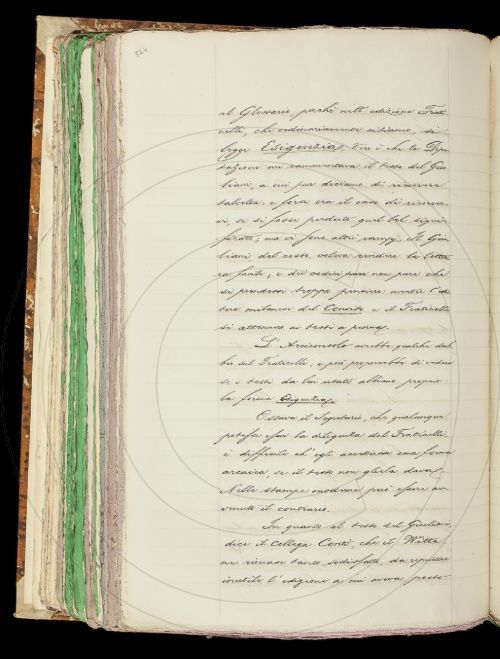 524
al Glossario, perchè nell'edizione Frati
celli, che ordinariamente citiamo, si
legge Esigenzia. Vero è che la Depu
tazione mi rammentava il testo del Giu
liani, a cui pur diciamo di ricorrere
talvolta; e forse era il caso di ricorrer
vi, se si fosse perduto quel bel signi
ficato; ma vi sono altri esempj. Il Giu
liani, del resto, voleva rendere la lettu
ra facile; e di codici non pare che
si prendesse troppo pensiero: mentre l'edi
tore milanese del Convito e il Fraticelli
si attennero ai testi a penna.
L'Arciconsolo avrebbe qualche dub
bio sul Fraticelli; e però proporrebbe di vedere
se i testi da lui citati abbiano proprio
la forma Esigenzia.
Osserva il Segretario, che qualunque
potesse esser la diligenza del Fraticelli,
è difficile ch'egli accettasse una forma
arcaica, se il testo non gliela dava.
Nelle stampe moderne può essere av
venuto il contrario.
In quanto al testo del Giuliani,
dice il Collega Conti, che il Witte
ne rimase tanto sodisfatto, da reputare
inutile l'edizione a cui aveva posto